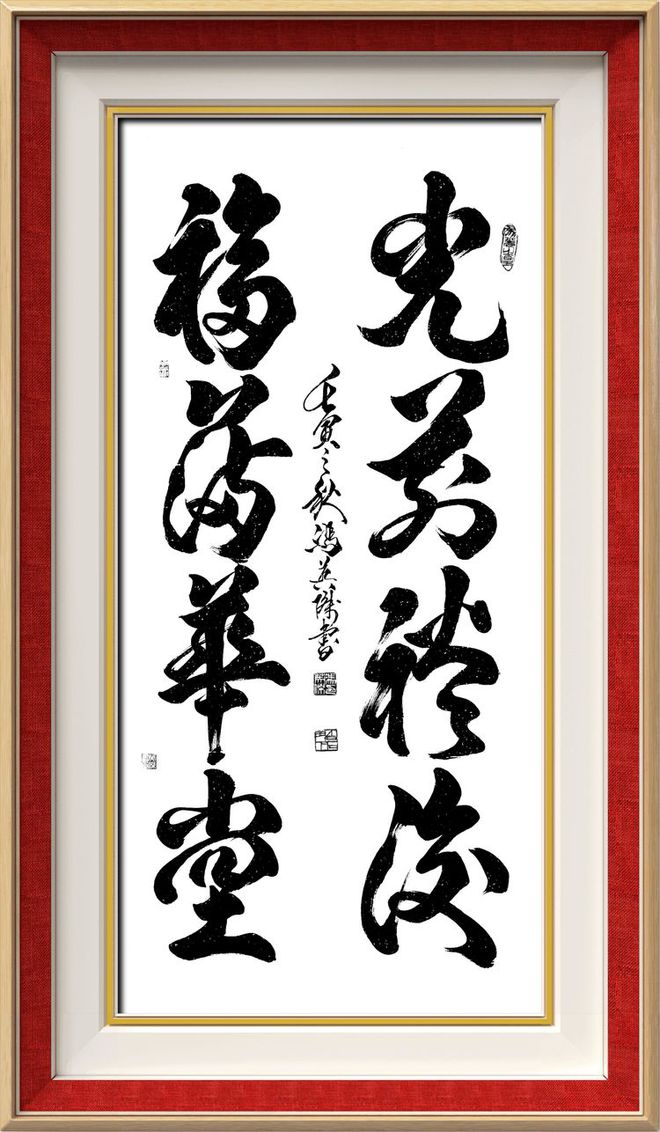 光前裕後
福滿華堂
壬寅之秋馮英書